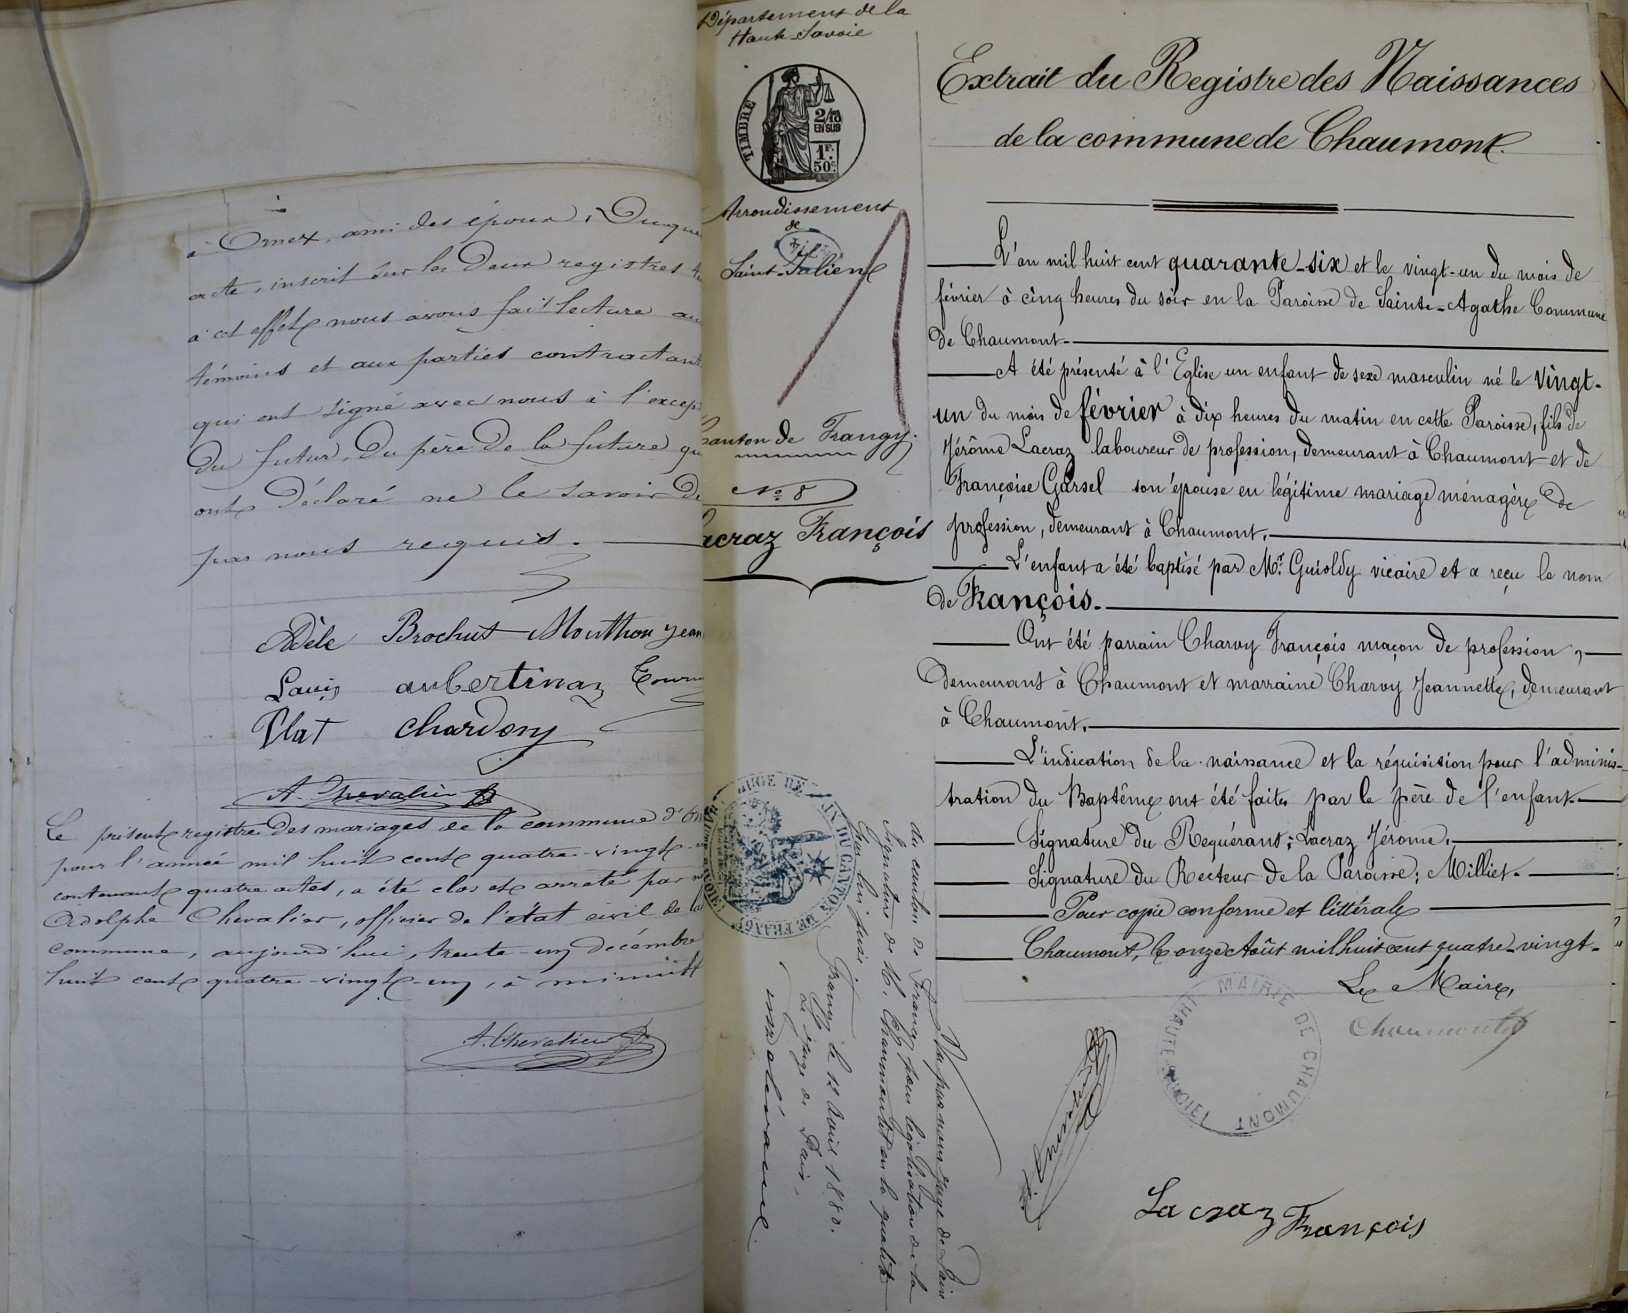 à Ornex, ami des époux, Duquel
acte, inscrit sur les Deux registres
à cet effet nous avons fait lecture aux
témoins et aux parties contractantes
qui ont signé avec nous à l'excep
du futur, du père de la future qui
ont Déclaré ne le savoir De
par nous requis.
Adèle Brochut Monthon Jean
Louis aubertinaz Tourn
Plat chardon
A. Chevalier
Le présent registre des mariages de la commune d'Or
pour l'année mil huit cent quatre-vingt-
contenant quatre actes, a été clos et arrêté par nous
Adolphe Chevalier, officier de l'état civil de la
commune, aujourd'hui, trente-un décembre
huit cent quatre-vingt-un, à minuit
A. Chevalier
Département de la
Haute-Savoie
TIMBRE
2/10
EN SUS
1F.
50c.
Arrondissement
de
Saint-Julien
Canton de Frangy.
No. 8
Lacraz François
Extrait du Registre des Naissances
de la commune de Chaumont.
L'an mil huit cent quarante-six et le vingt-un du mois de
février à cinq heures du soir en la Paroisse de Sainte-Agathe Commune
de Chaumont.
A été présenté à l'Eglise un enfant de sexe masculin né le vingt-
un du mois de février à dix heures du matin en cette Paroisse, fils de
Jérôme Lacraz laboureur de profession, demeurant à Chaumont et de
Françoise Garsel son épouse en légitime mariage ménagère de
profession, demeurant à Chaumont.
L'enfant a été baptisé par Mr. Guioldy vicaire et a reçu le nom
de François.
Ont été parrain Charvy François maçon de profession,
demeurant à Chaumont et marraine Charvy Jeannette, demeurant
à Chaumont.
L'indication de la naissance et la réquisition pour l'adminis-
tration du Baptême ont été faites par le père de l'enfant.
Signature du Requérant; Lacraz Jérome.
Signature du Recteur de la Paroisse; Milliet.
Pour copie conforme et littérale
Chaumont, le onze Août mil huit cent quatre-vingt-
Le Maire,
Chaumontet
MAIRIE DE CHAUMONT
Lacraz François
Vu par nous juge de Paix
du canton de Frangy pour légalisation de la
signature de M. Chaumontet en la qualité
Frangy le 12 Août 1880.
Le juge de Paix,